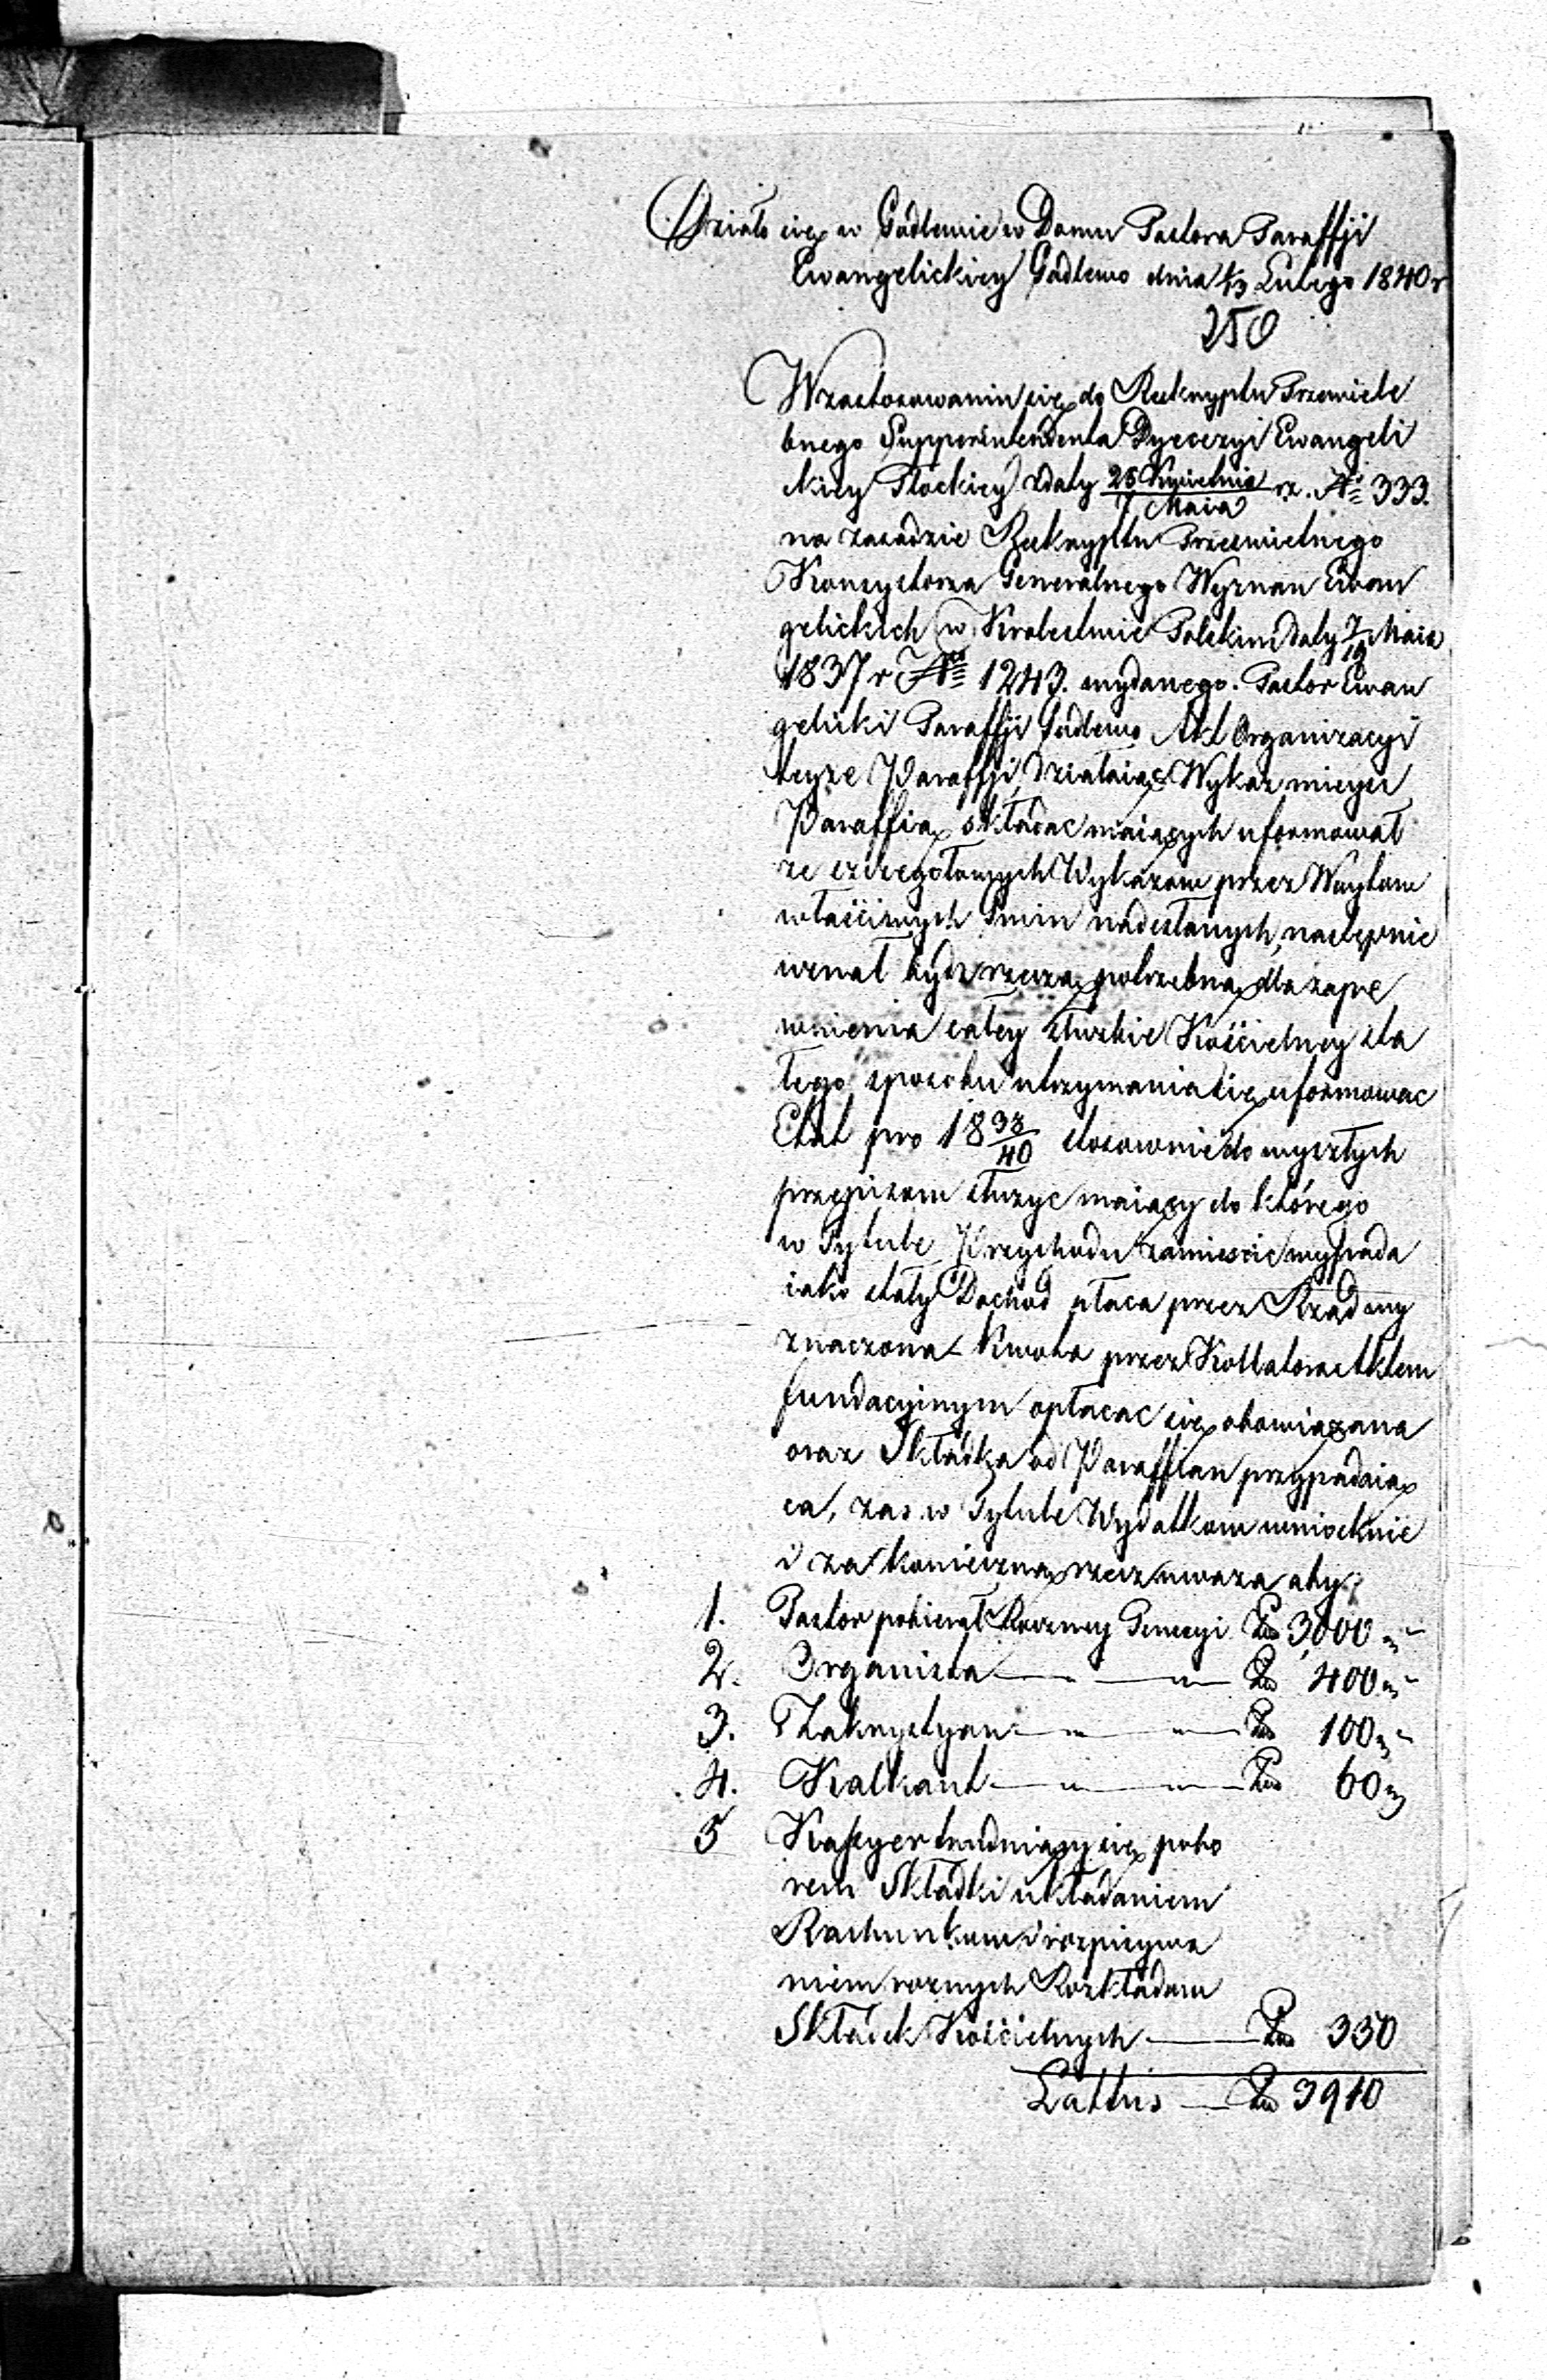 Działo się w Godlewie w Domu Pastora Paraffji
Ewangelickiey Godlewo dnia 1/13 Lutego 1840 r
250
W zastosowaniu się do Reskryptu Przewiele
bnego Supperintendenta Dyecezyi Ewangeli
ckiey Płockiey z daty 25 Kwietnia/7 Maia rz. No 333.
na zasadzie Reskryptu Prześwietnego
Konsystorza Generalnego Wyznan Ewan
gelickich w Krolestwie Polskim daty 7/19 Maia
1837 r No 1243. wydanego. Pastor Ewan
gelicki Paraffji Godlewo Akt Organizacyi
teyze Paraffji działaiąc Wykaz mieysc
Paraffią składac maiących uformował
ze szczegołowych Wykazow przez Woytow
właściwych Gmin nadesłanych, następnie
uznał bydz rzeczą potrzebną dla zape
wnienia całey służbie Kościelney sta
łego sposobu utrzymania się uformowac
Etat pro 1838/40 stosownie do wyszłych
przepisow służyc maiący do którego
w Tytule Przychodu zamieścic wypada
iako stały Dochod płaca przez Rząd wy
znaczona Kwota przez Kollatora Aktem
fundacyinym opłacac się obowiązana
oraz Składka od Paraffian przypadaią
ca, zas w Tytule Wydatkow wnioskuie
i za konieczną rzecz uwaza aby
1. Pastor pobierał Roczney Pensyi Zł 3,000 „-
2. Organista — „ — „ — Zł 400 „-
3. Zakrystyan — „ — „ — Zł 100 „-
4. Kalkant — „ — „ — Zł 60 „
5 Kassyer trudniący się pobo
rem Składki układaniem
Rachunkow i rozpisywa
niem roznych Rozkładow
Składek Kościelnych — Zł 350
Lattus — Zł 3910